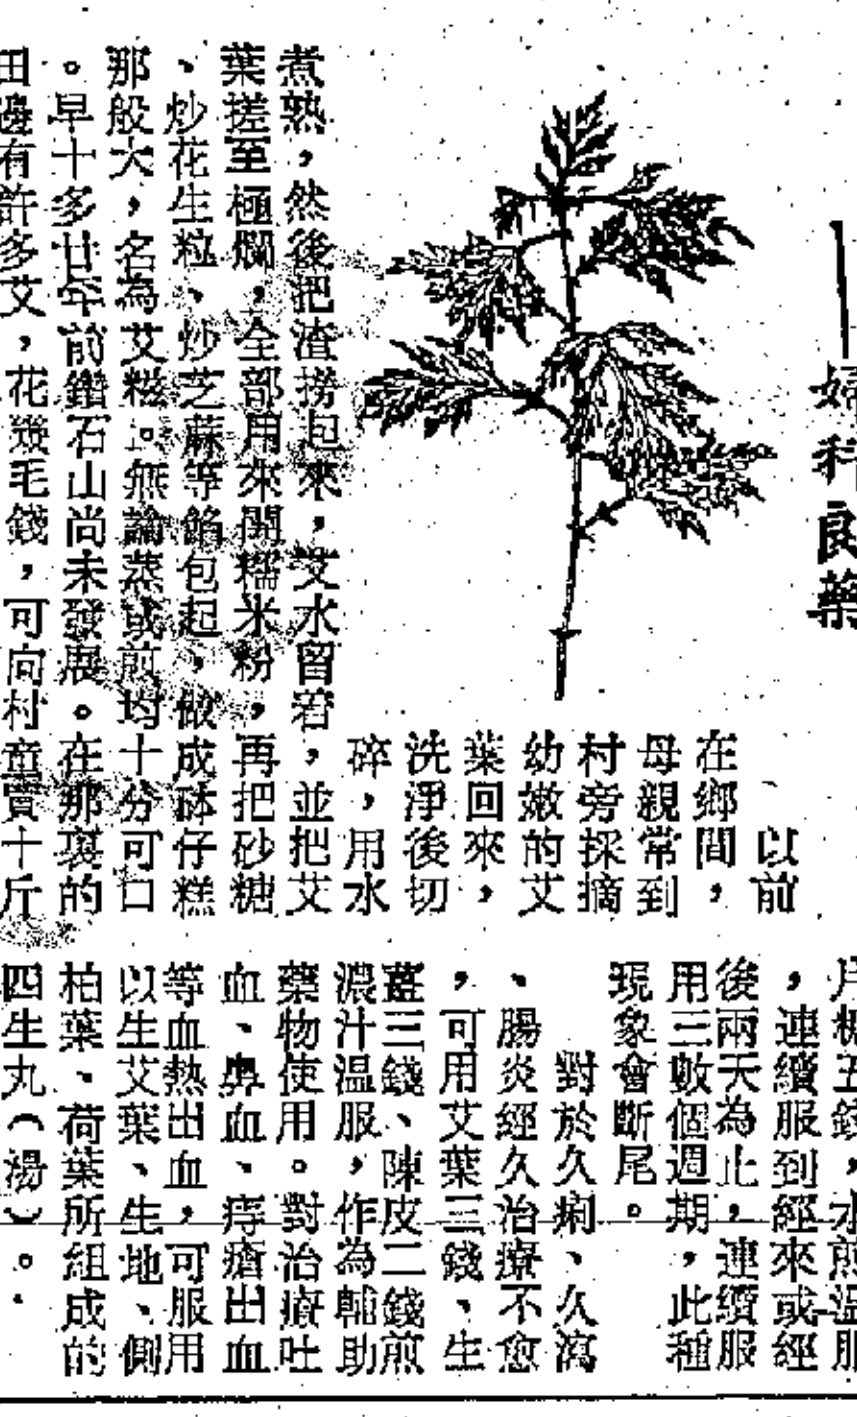 婦科良藥
以前
在鄉間，
母親常到
村旁採摘
幼嫩的艾
葉回來，
洗淨後切
碎，用水
煮熟，然後把渣撈起來，艾水留着，並把艾
葉搓至極爛，全部用來開糯米粉，再把砂糖
、炒花生粒、炒芝蔴等餡包起，做成砵仔糕
那般大，名為艾糍。無論蒸或煎均十分可口
。早十多廿年前鑽石山尚未發展。在那裏的
田邊有許多艾，花幾毛錢，可向村童買十斤
月糖五錢，水煎溫服
，連續服到經來或經
後兩天為止，連續服
用三數個週期，此種
現象會斷尾。
對於久痢、久瀉
、腸炎經久治療不愈
，可用艾葉三錢、生
薑三錢、陳皮二錢煎
濃汁溫服，作為輔助
藥物使用。對治療吐
血、鼻血、痔瘡出血
等血熱出血，可服用
以生艾葉、生地、側
柏葉、荷葉所組成的
四生丸（湯）。